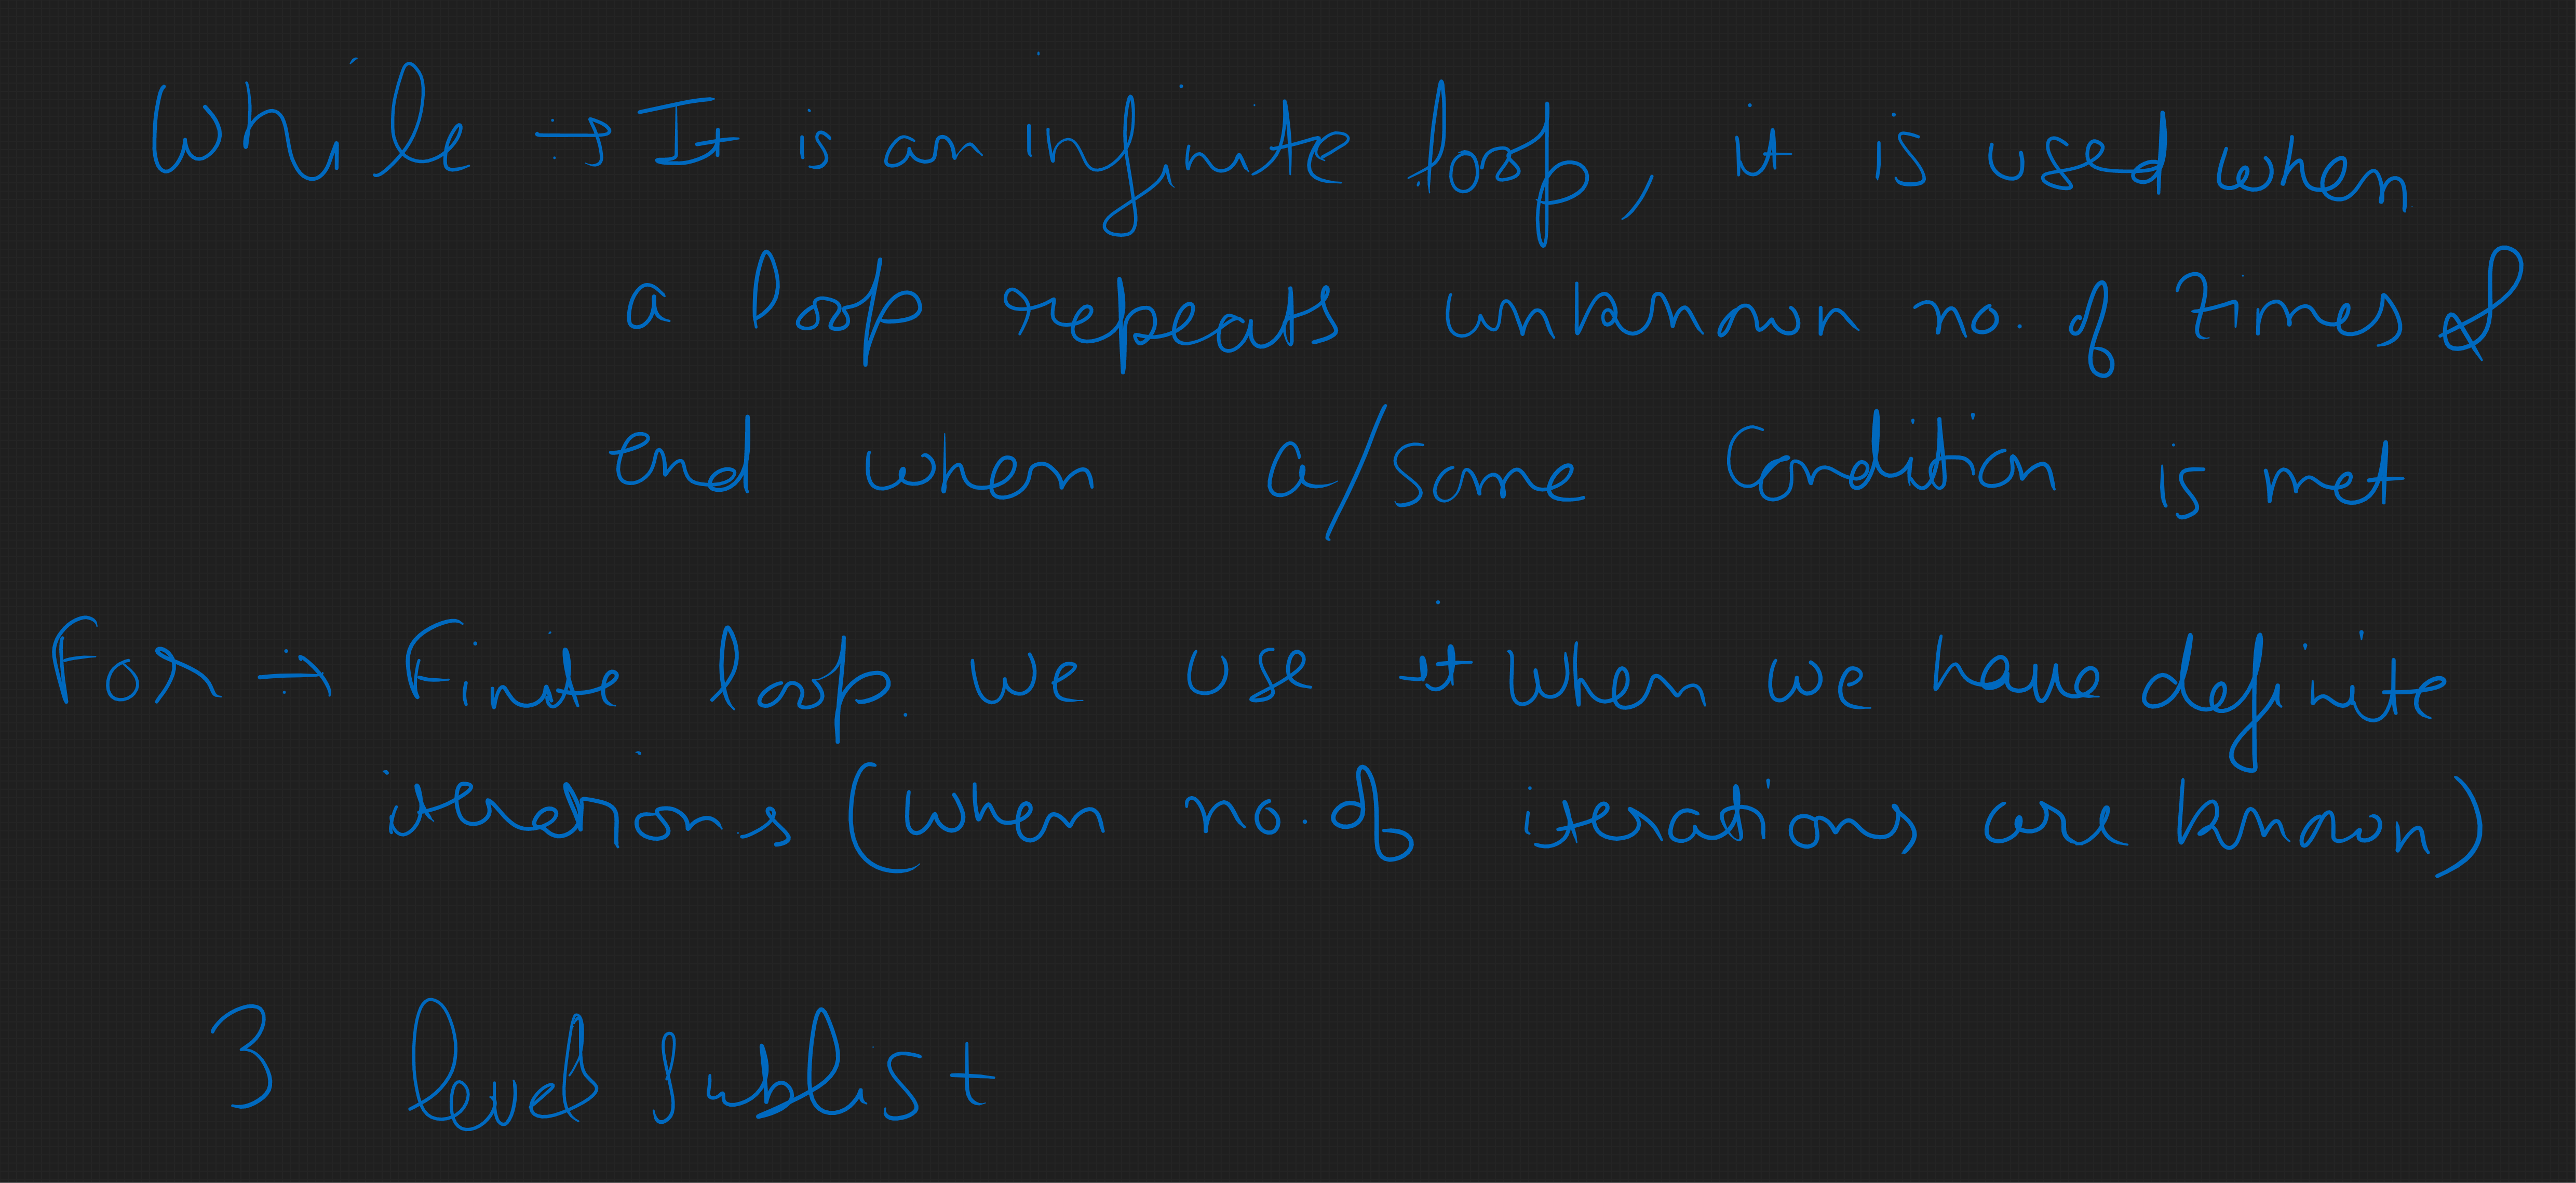 While → It is an infinite loop, it is used when
a loop repeats unknown no. of times &
end when a/some condition is met
For → Finite loop. we use it when we have definite
iterations (when no. of iterations are known)
3 level sublist